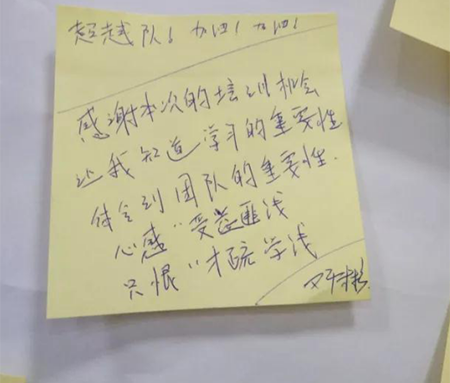 超越队！加四！加四！
感谢本次的培训机会
让我知道学习的重要性
体会到团队的重要性.
心感"受益匪浅
只恨"才疏学浅